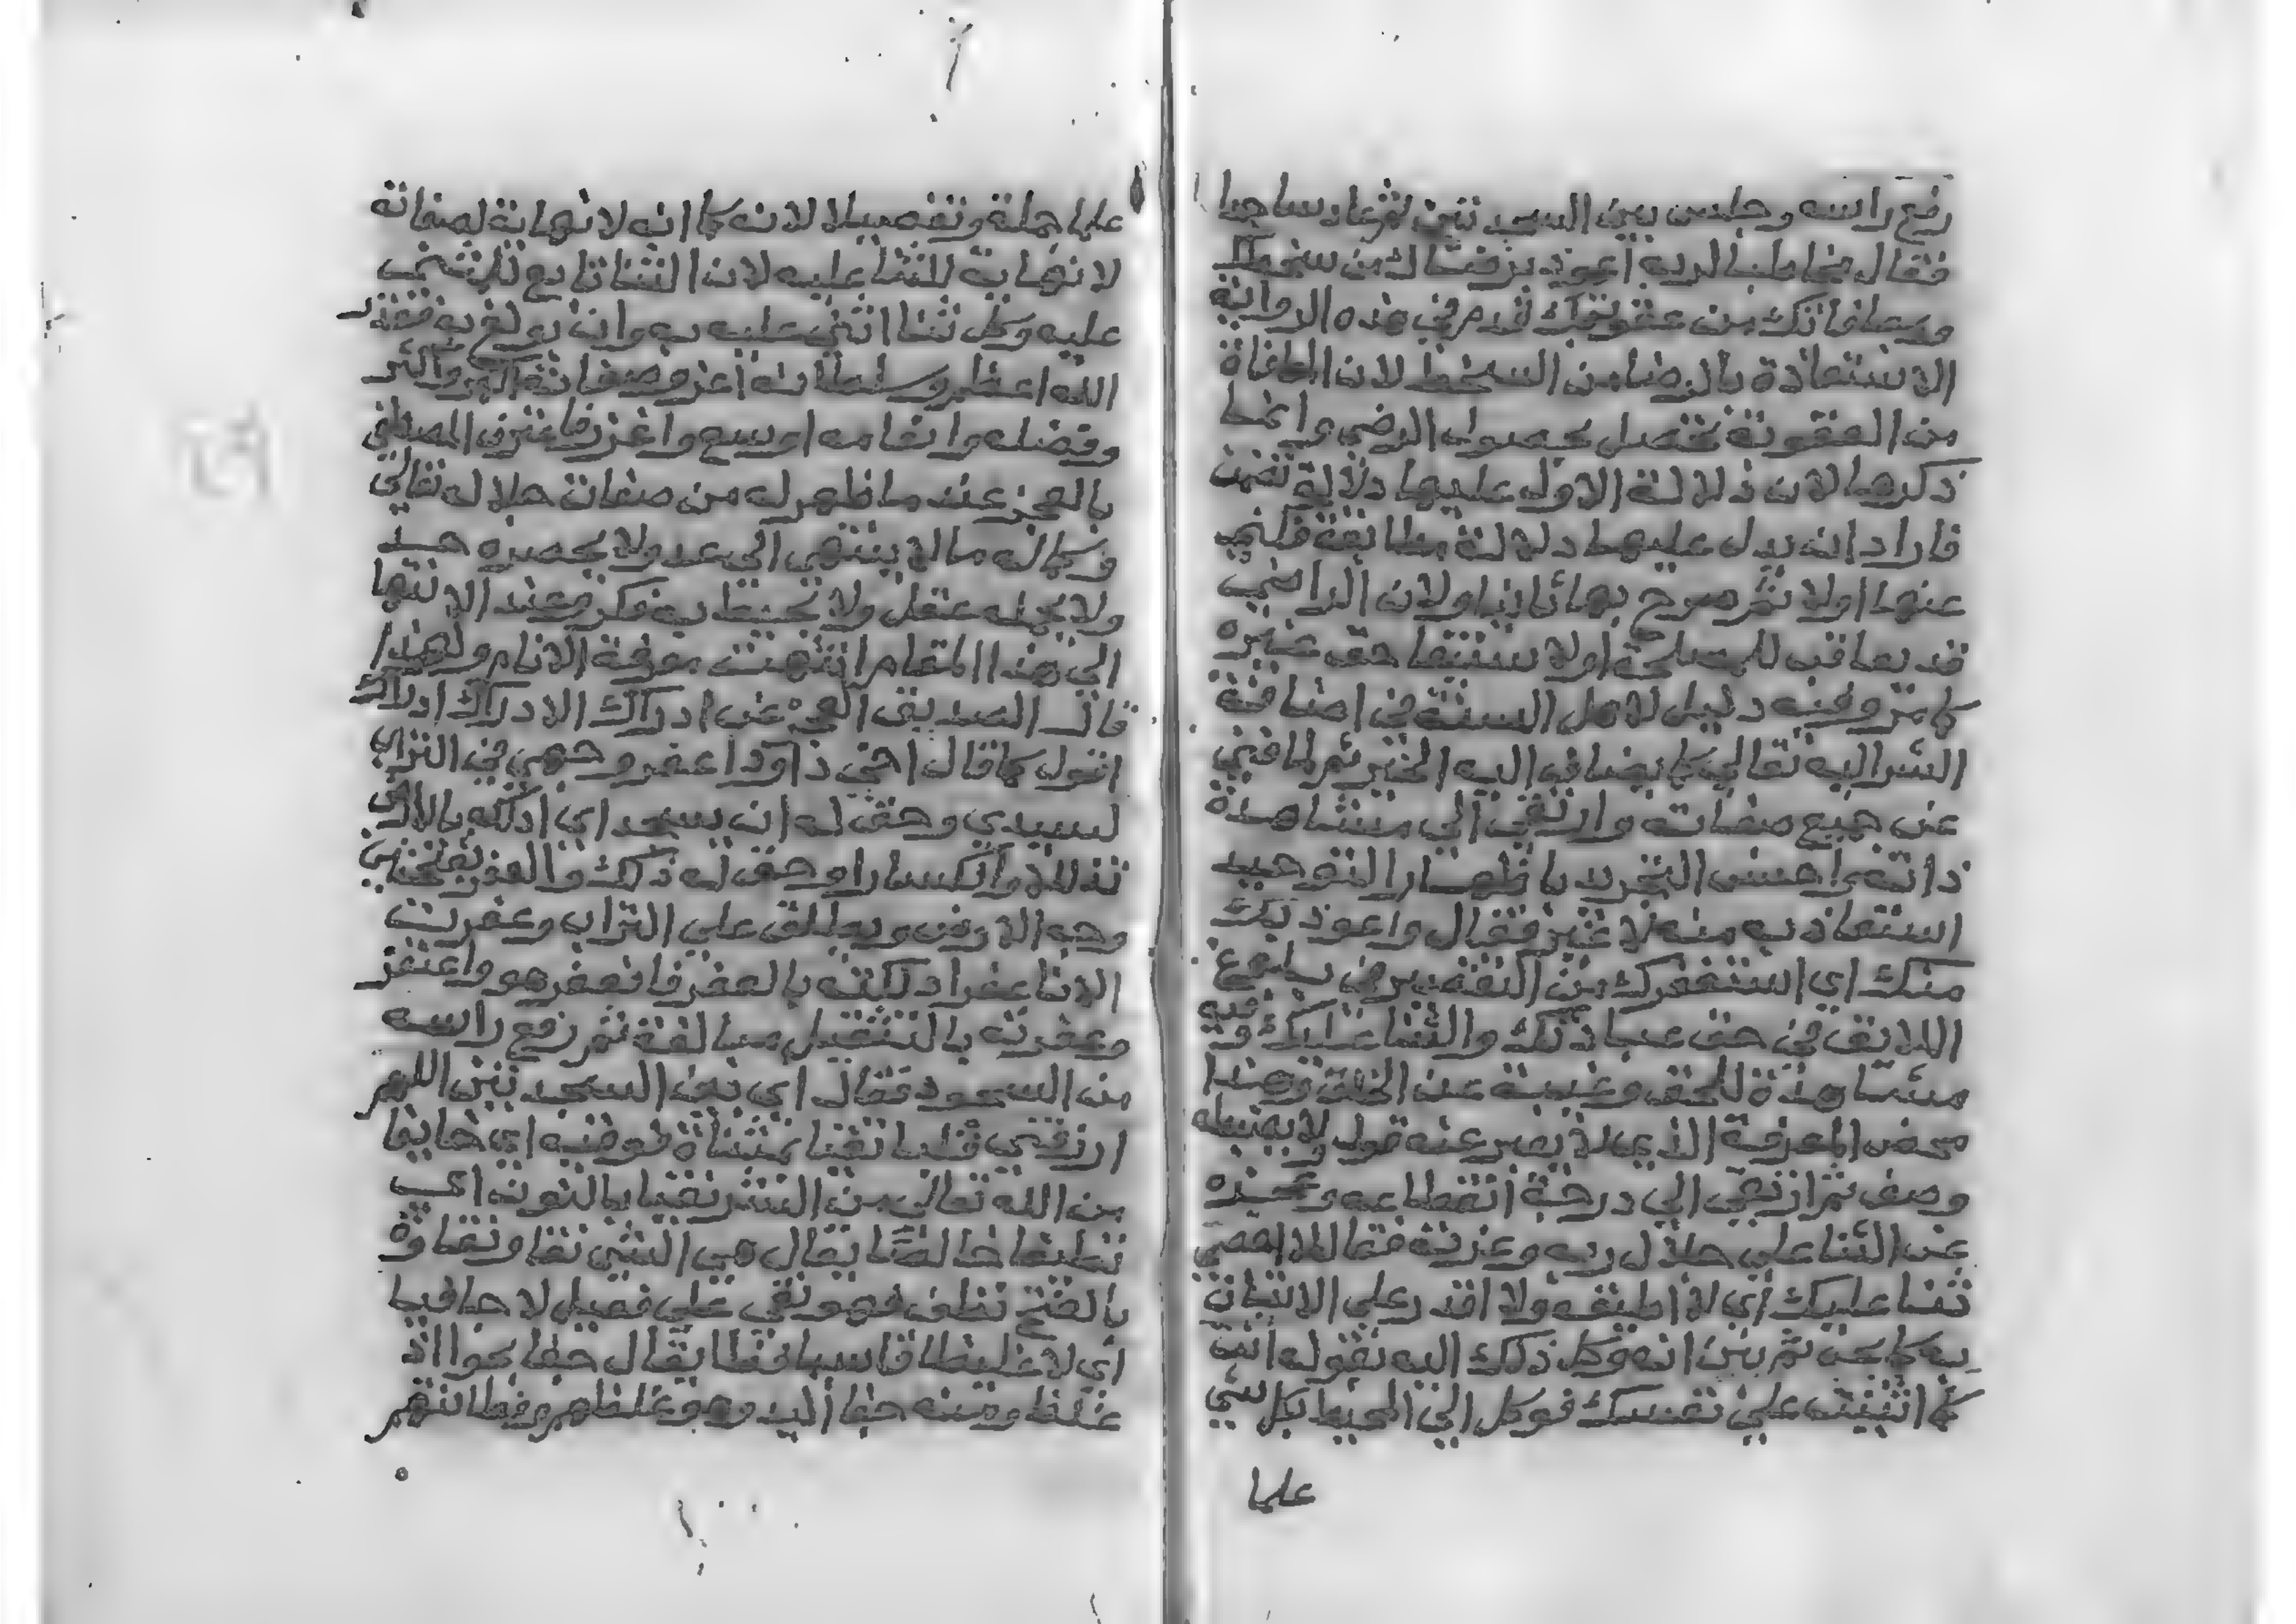 رفع راسه وجلس بين السجدتين ثم عاد ساجدا
فقال مخاطبا لربه اعوذ برضاك من سخطك
وبمعافاتك من عقوبتك قدم في هذه الرواية
الاستعاذة بالرضا من السخط لان المعافاة
من العقوبة تحصل بحصول الرضى وانما
ذكرها لان دلالة الاول عليها دلالة تضمن
فاراد ان يدل عليها دلالة مطابقة فكنى
عنها اولا ثم صرح بها ثانيا ولان الراضي
قد يعاقب للمصلحة اولاستيفا حق غيره
كما مر وفيه دليل لاهل السنة في اضافة
الشر اليه تعالى كما يضاف اليه الخير ثم لما فني
عن جميع صفاته وارتقى الى مشاهدة
ذاته احسن التجريد باظهار التوحيد
استعاذ به منه لا غير فقال واعوذ بك
منك اي استغفرك من التقصير في بلوغ
اللايق في حق عبادتك والثنا عليك وفيه
مشاهدة للحق وغيبة عن الخلق وهذا
محض المعرفة الذي لا يعبر عنه قول ولا يضبطه
وصف ثم ارتقى الى درجة انقطاعه وعجزه
عن الثنا على جلال ربه وعزته فقال لا احصي
ثنا عليك اي لا اطيقه ولا اقدر على الاتيان
به كما يجب ثم بين انه وكل ذلك اليه بقوله انت
كما اثنيت على نفسك فوكل الى المحيط بكل شي
علما
علما جملة وتفصيلا لانه كما انه لا نهاية لصفاته
لا نهاية للثنا عليه لان الثنا تابع للمثنى
عليه وكل ثنا اثني عليه به وان بولغ فيه فقدر
الله اعظم وسلطانه اعز وصفاته اكبر واكثر
وفضله وانعامه اوسع واغزر فاعترف المصطفى
بالعجز عند ما ظهر له من صفات جلاله تعالى
وكماله ما لا ينتهي الى عد ولا يحصره حد
ولا يحمله عقل ولا يحيط به فكر وعند الانتها
الى هذا المقام انتهت معرفة الانام ولهذا
قال الصديق العجز عن درك الادراك ادراك
اقول كما قال اخي داود اعفر وجهي في التراب
لسيدي وحق له ان يسجد اي ادلكه بالارض
تذللا وانكسارا وحق له ذلك والعفر بفتحتين
وجه الارض ويطلق على التراب وعفرت
الانا عفرا دلكته بالعفر فانعفر هو واعتفر
وعفرته بالتثقيل مبالغة ثم رفع راسه
من السجود فقال اي بين السجدتين اللهم
ارزقني قلبا تقيا بمثناة فوقية اي خايفا
من الله تعالى من الشر نقيا بالنون اي
نظيفا خالصا يقال نقي الشي نقا ونقاوة
بالفتح نظف فهو نقي على فعيل لا جافيا
اي لا غليظا قاسيا فظا يقال جفا يجفوا اذا
غلظ ومنه جفا البدو وهو غلظهم وفظاظتهم